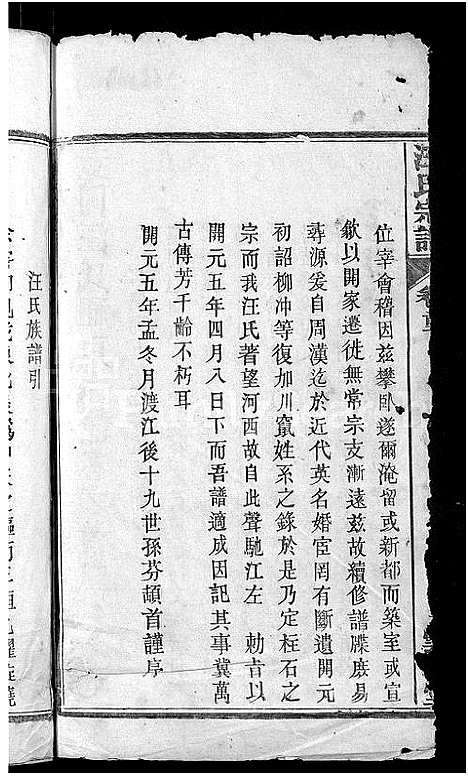 汪氏宗譜
位宰會稽因兹攀卧遂爾淹留或新都而築室或宣
歙以開家遷徙無常宗支漸遠兹故續修譜牒庶易
尋源爰自周漢迄於近代英名婚宦罔有斷遺開元
初詔柳冲等復加川竄姓系之錄於是乃定柱石之
宗而我汪氏著望河西故自此聲馳江左 勅吉以
開元五年四月八日下而吾譜適成因記其事冀萬
古傳芳千齡不朽耳
開元五年孟冬月渡江後十九世孫芬頓首謹序
汪氏族譜引